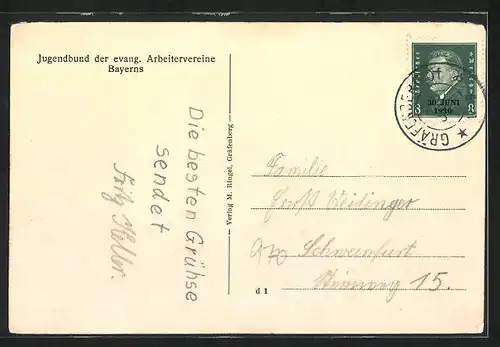 Jugendbund der evang. Arbeitervereine
Bayerns
Die besten Grühse
sendet
Fritz Keller.
Verlag M. Ringel, Gräfenberg
d 1
30. JUNI
1930
8 8
GRÄFENBERG
Familie
Weidinger
Schweinfurt
15.